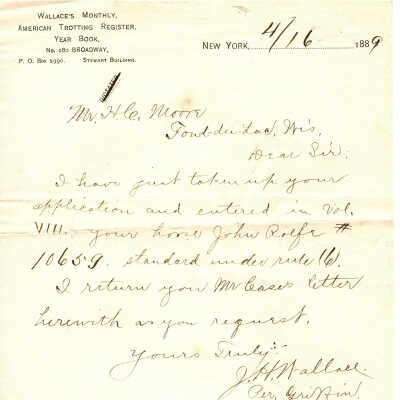 WALLACE'S MONTHLY,
AMERICAN TROTTING REGISTER,
YEAR BOOK,
No. 280 BROADWAY,
P. O. Box 2990. STEWART BUILDING.
NEW YORK, 4/16 1889
Mr. H. C. Moore
Fond-du-Lac, Wis,
Dear Sir.
I have just taken up your
application and entered in Vol.
VIII. your horse John Rolfe #
10659. standard under rule 16.
I return you Mr Cases letter
herewith as you request.
Yours Truly
J. H. Wallace.
Per. Griffin.